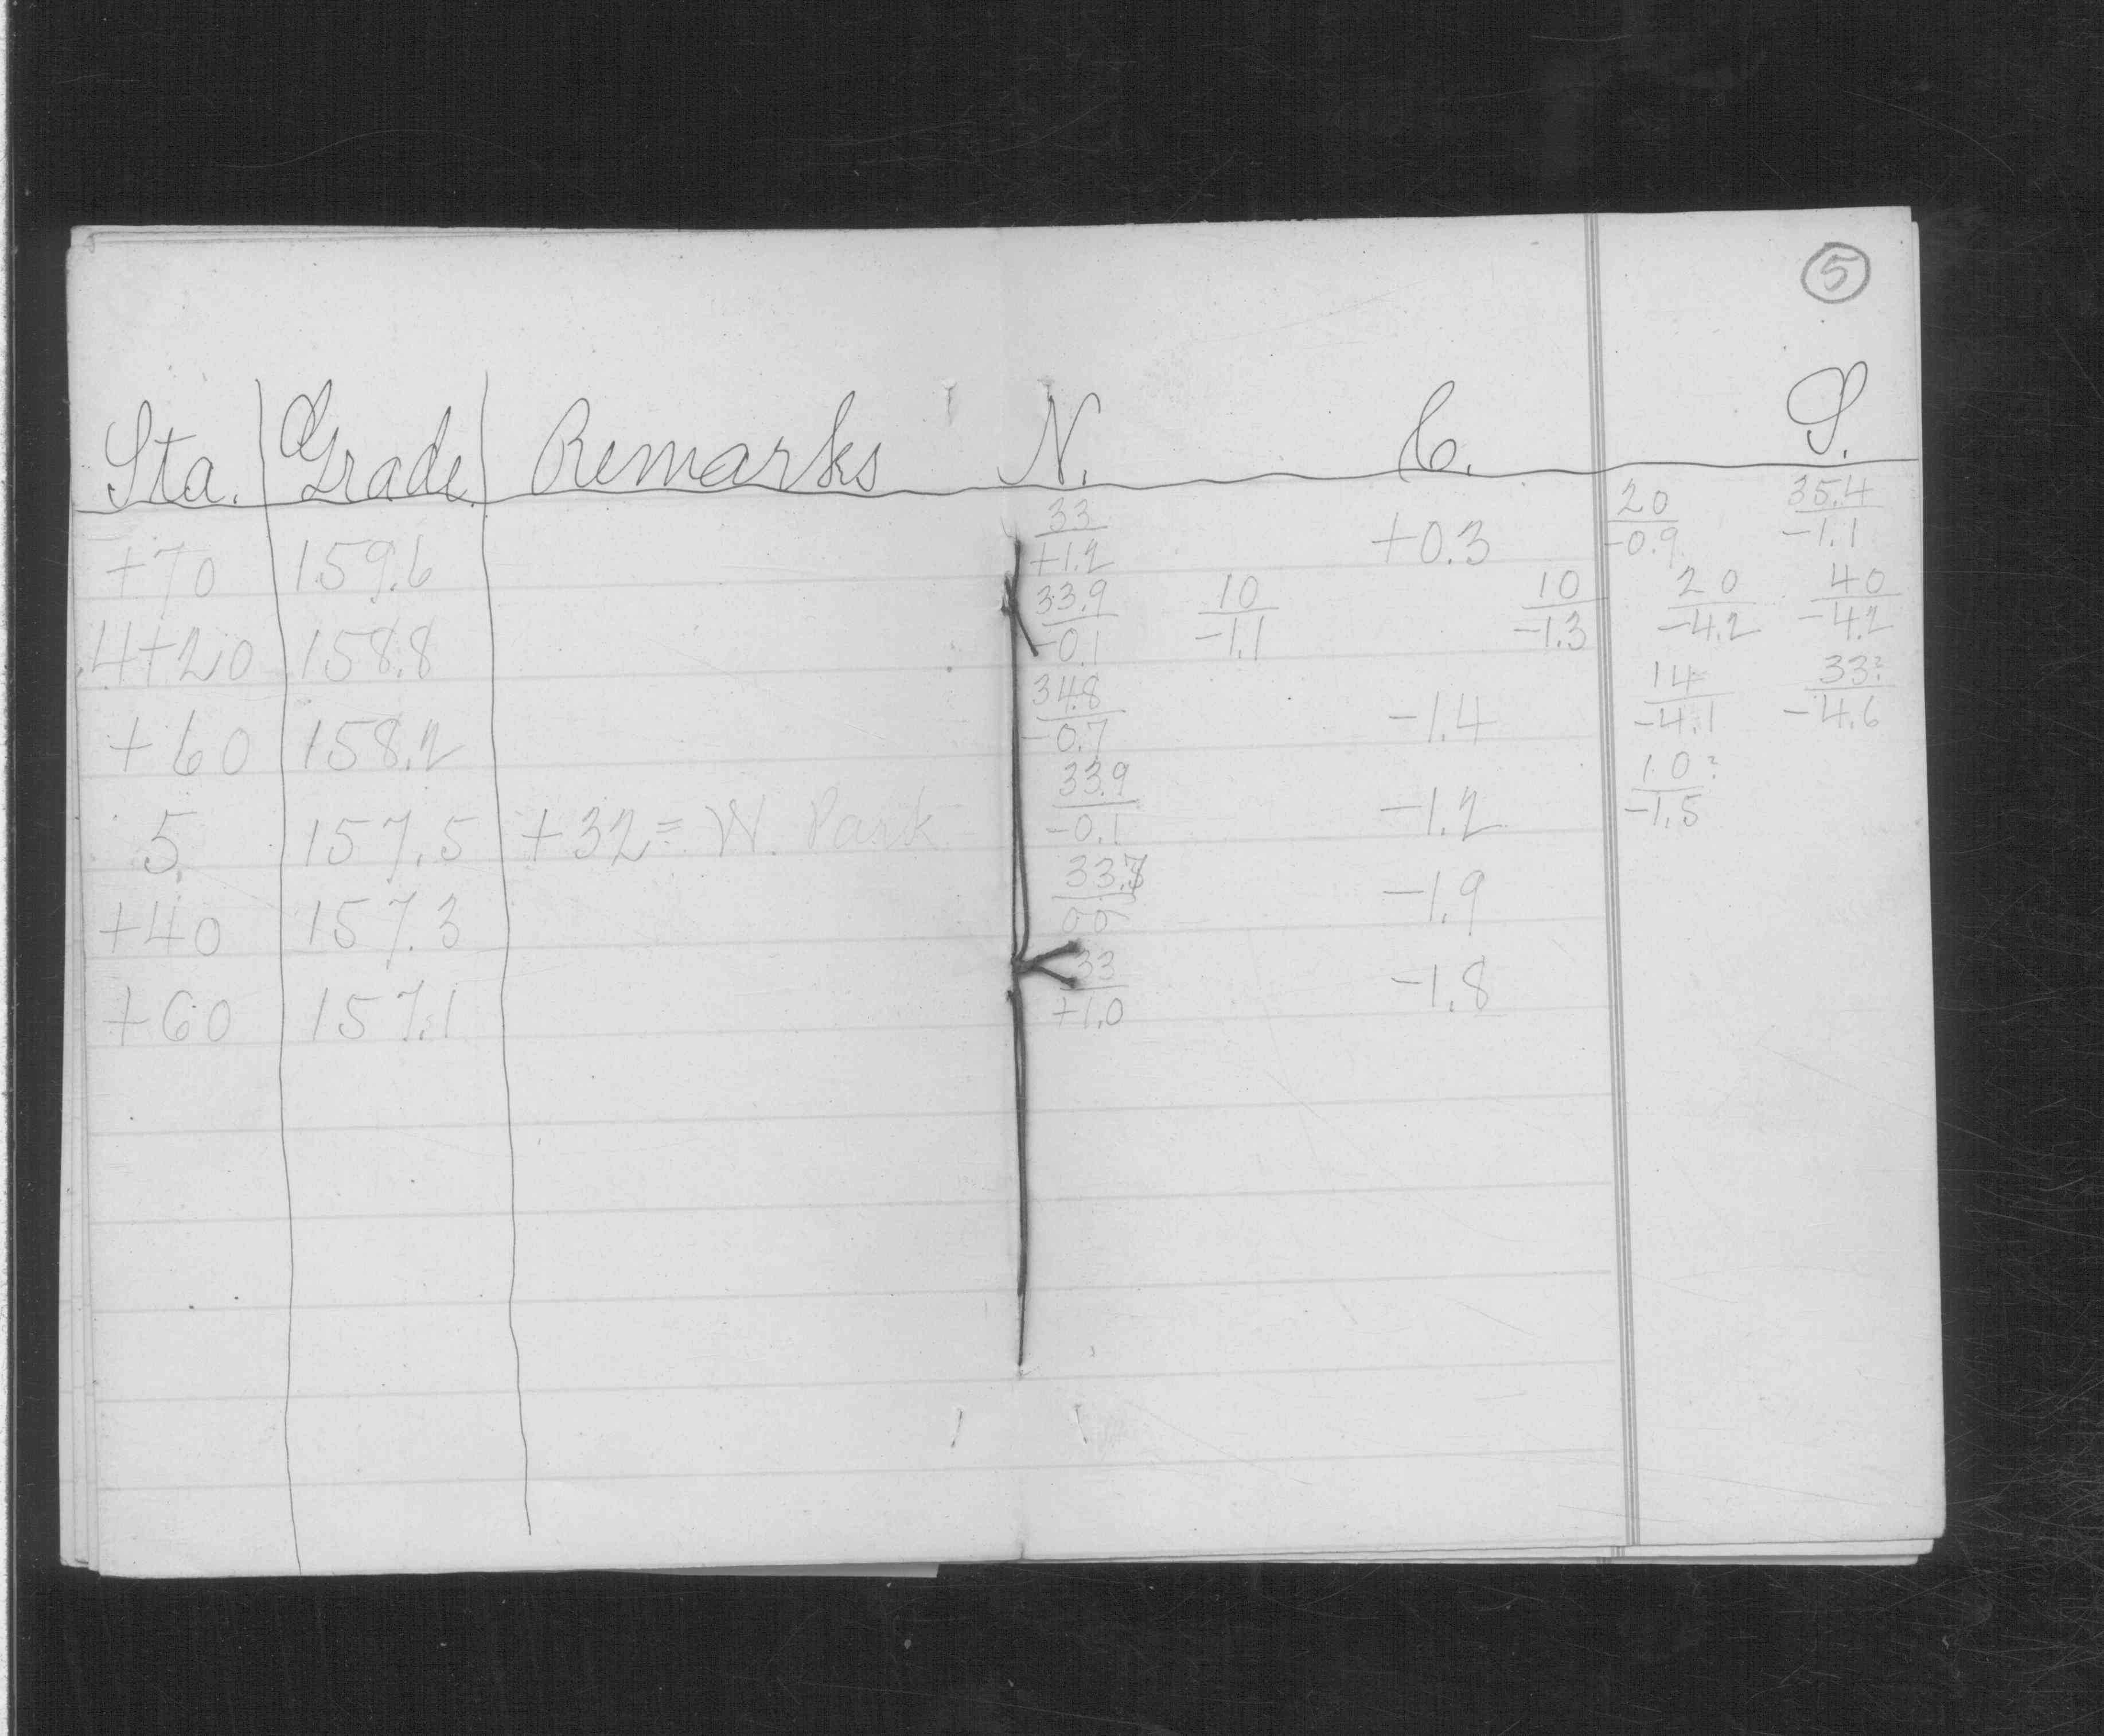 5
Sta. Grade Remarks N. C. S.
+70 159.6 33/+1.2 +0.3 20/-0.9 35.4/-1.1
4+20 158.8 33.9/-0.1 10/-1.1 10/-1.3 20/-4.2 40/-4.2
+60 158.2 34.8/-0.7 -1.4 14/-4.1 33?/-4.6
5 157.5 +32= W. Park 33.9/-0.1 -1.2 10?/-1.5
+40 157.3 -1.9
+60 157.1 33/+1.0 -1.8